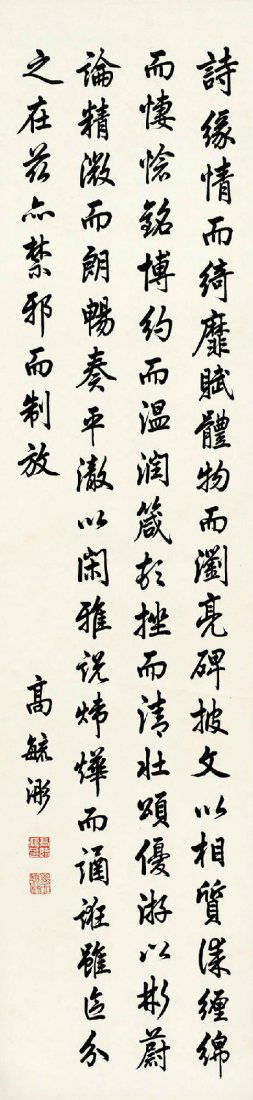 詩緣情而綺靡賦體物而瀏亮碑披文以相質誄纏綿
而悽愴銘博約而溫潤箴頓挫而清壯頌優游以彬蔚
論精微而朗暢奏平澈以閑雅說煒燁而譎誑雖區分
之在茲亦禁邪而制放
高毓浵